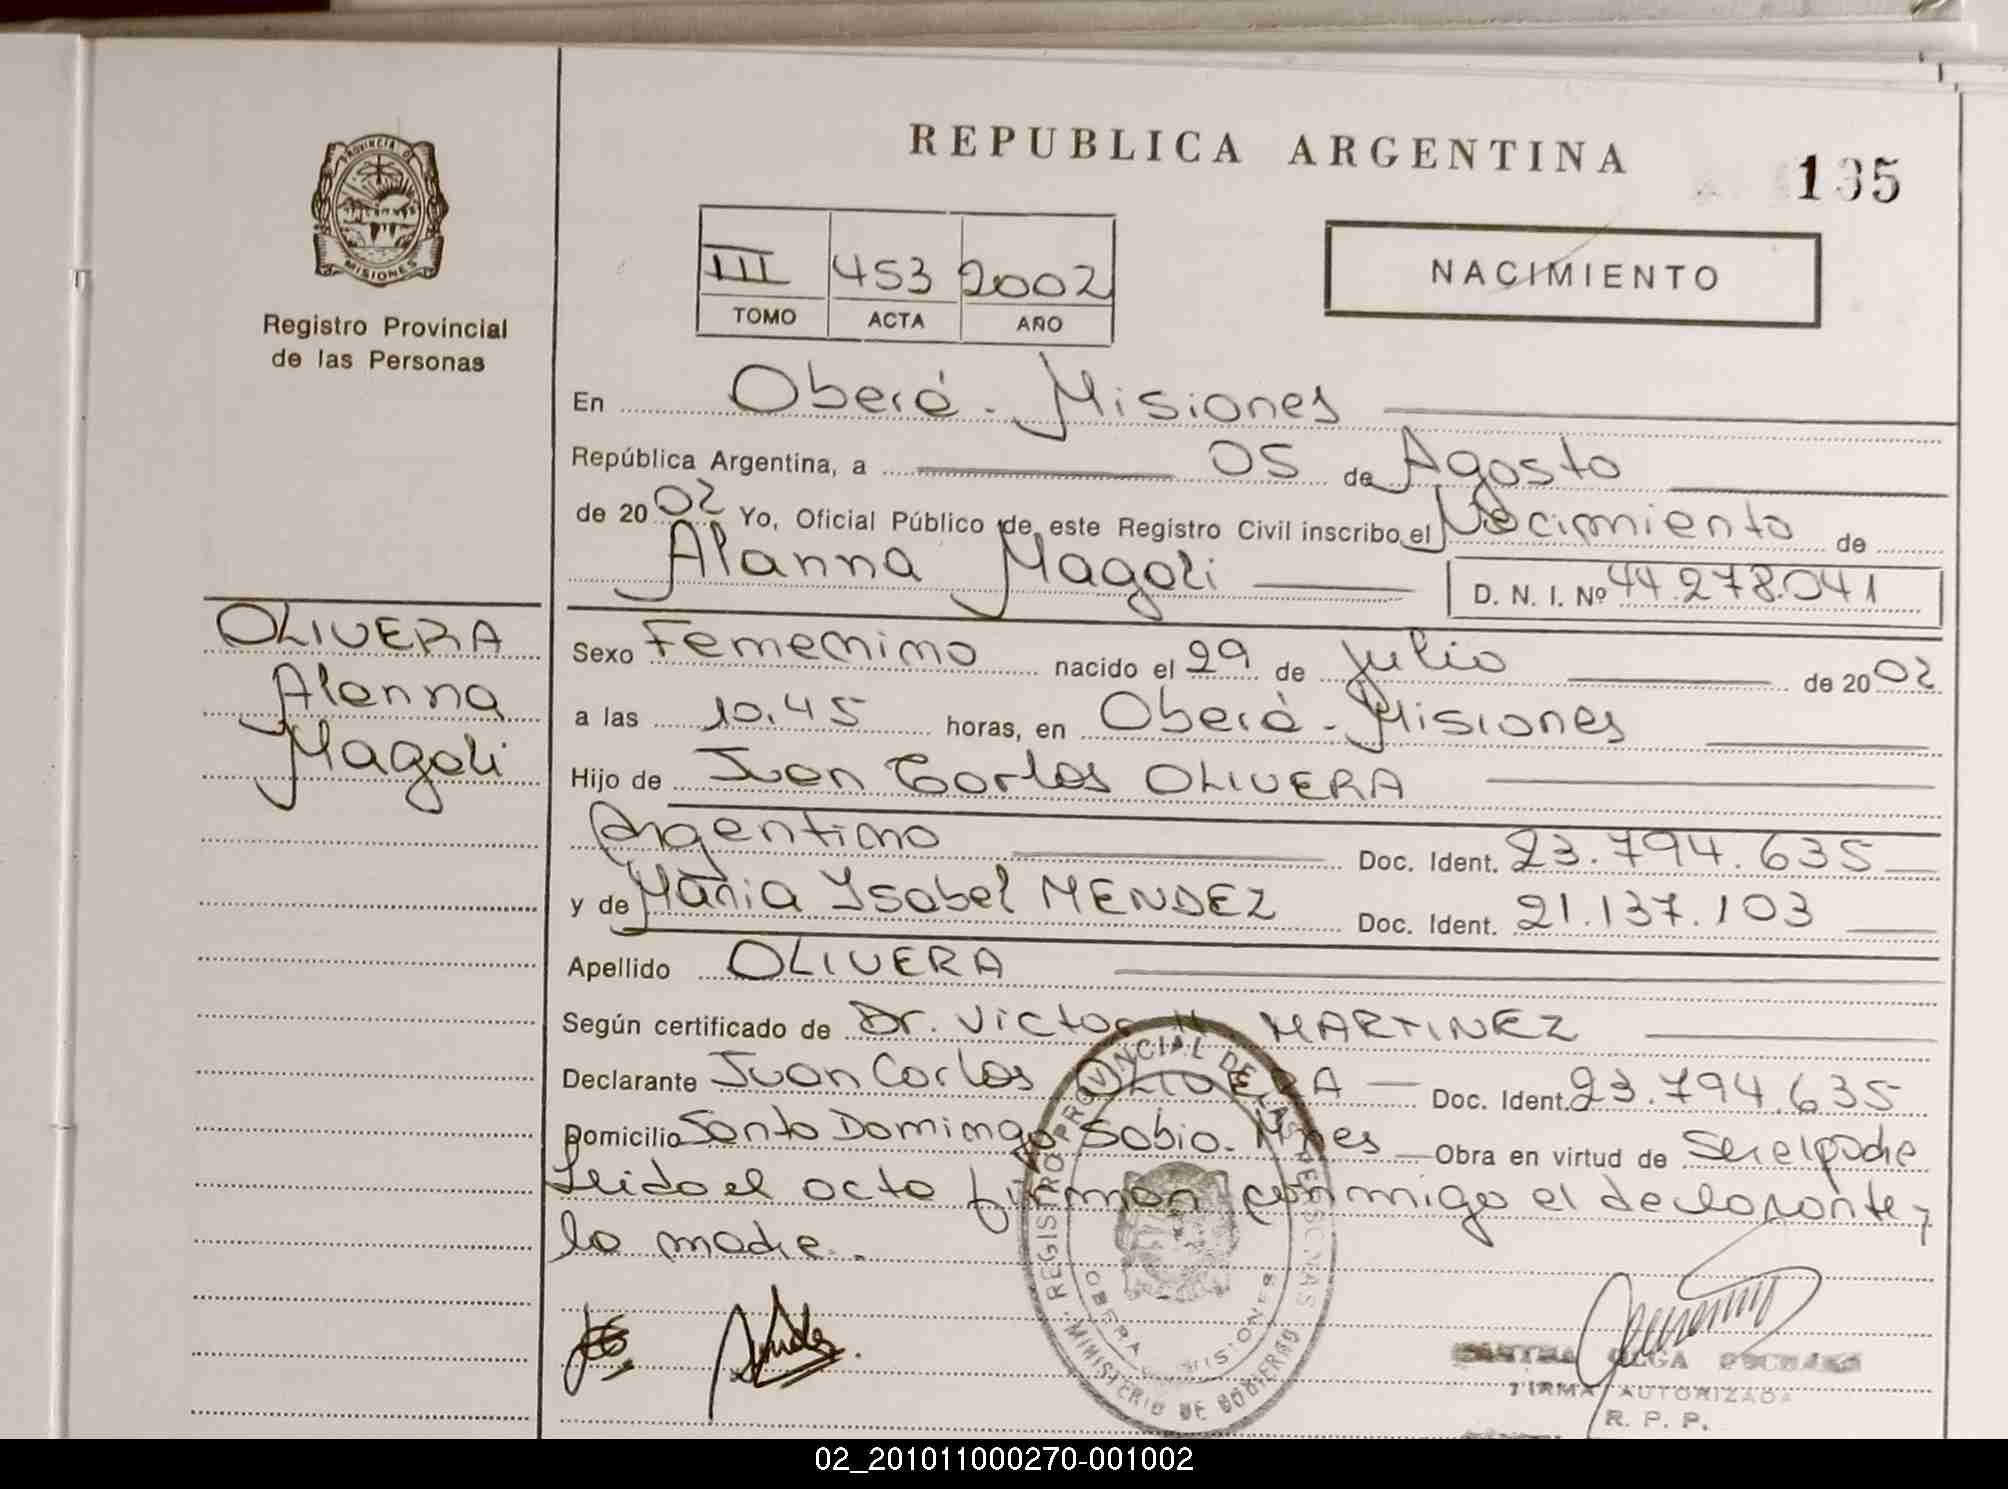 REPUBLICA ARGENTINA
135
PROVINCIA DE
MISIONES
Registro Provincial
de las Personas
III 453 2002
TOMO ACTA AÑO
NACIMIENTO
En Oberá - Misiones
República Argentina, a 05 de Agosto
de 2002 Yo, Oficial Público de este Registro Civil inscribo el Nacimiento de
Alanna Magali D. N. I. Nº 44.278.041
OLIVERA
Alanna
Magali
Sexo Femenino nacido el 29 de Julio de 2002
a las 10.45 horas, en Oberá - Misiones
Hijo de Juan Carlos OLIVERA
Argentino Doc. Ident. 23.794.635
y de María Isabel MENDEZ Doc. Ident. 21.137.103
Apellido OLIVERA
Según certificado de Dr. Victor H. MARTINEZ
Declarante Juan Carlos OLIVERA Doc. Ident. 23.794.635
Domicilio Santo Domingo Sabio. Mnes Obra en virtud de ser el padre
Leido el acta firman conmigo el declarante y
la madre.
REGISTRO PROVINCIAL DE LAS PERSONAS
OBERA MISIONES
MINISTERIO DE GOBIERNO
OLGA
FIRMA AUTORIZADA
R. P. P.
02_201011000270-001002